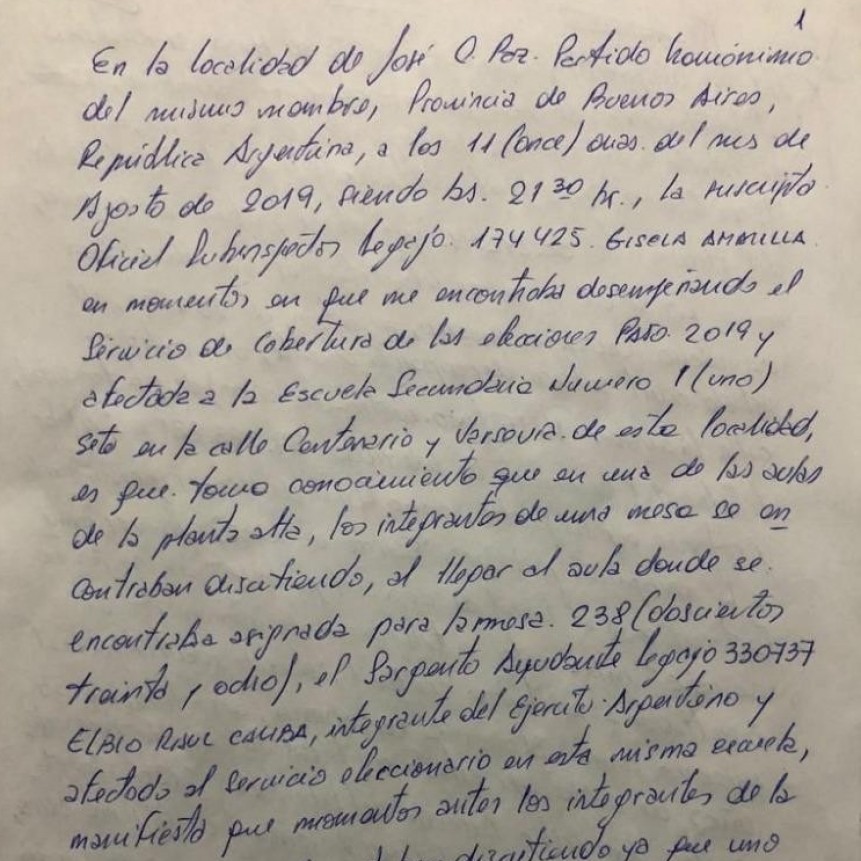 1
En la localidad de José C. Paz. Partido homónimo
del mismo nombre, Provincia de Buenos Aires,
República Argentina, a los 11 (once) dias. del mes de
Agosto de 2019, siendo las. 21 30 hr., la suscripta
Oficial Subinspector legajo. 174425. GISELA
en momentos en que me encontraba desempeñando el
Servicio de Cobertura de las elecciones PASO. 2019 y
afectada a la Escuela Secundaria Numero 1 (uno)
sito en la calle Centenario y Varsovia. de esta localidad,
es que. tomo conocimiento que en una de las aulas
de la planta alta, los integrantes de una mesa se en
contraban discutiendo, al llegar al aula donde se.
encontraba asignada para la mesa. 238 (doscientos
treinta y ocho), el Sargento Ayudante legajo 330737
ELBIO RAUL, integrante del Ejercito Argentino y
afectado al servicio eleccionario en esta misma escuela,
manifiesta que momentos antes los integrantes de la
discutiendo ya que uno